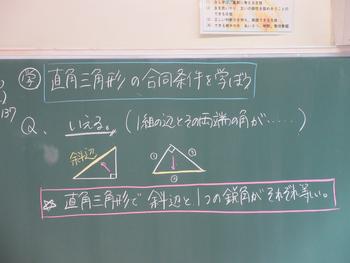 学 直角三角形の合同条件を学ぼう
137
Q、 いえる。(1組の辺とその両端の角が、……)
斜辺
① ③
②
直角三角形で 斜辺と1つの鋭角がそれぞれ等しい。